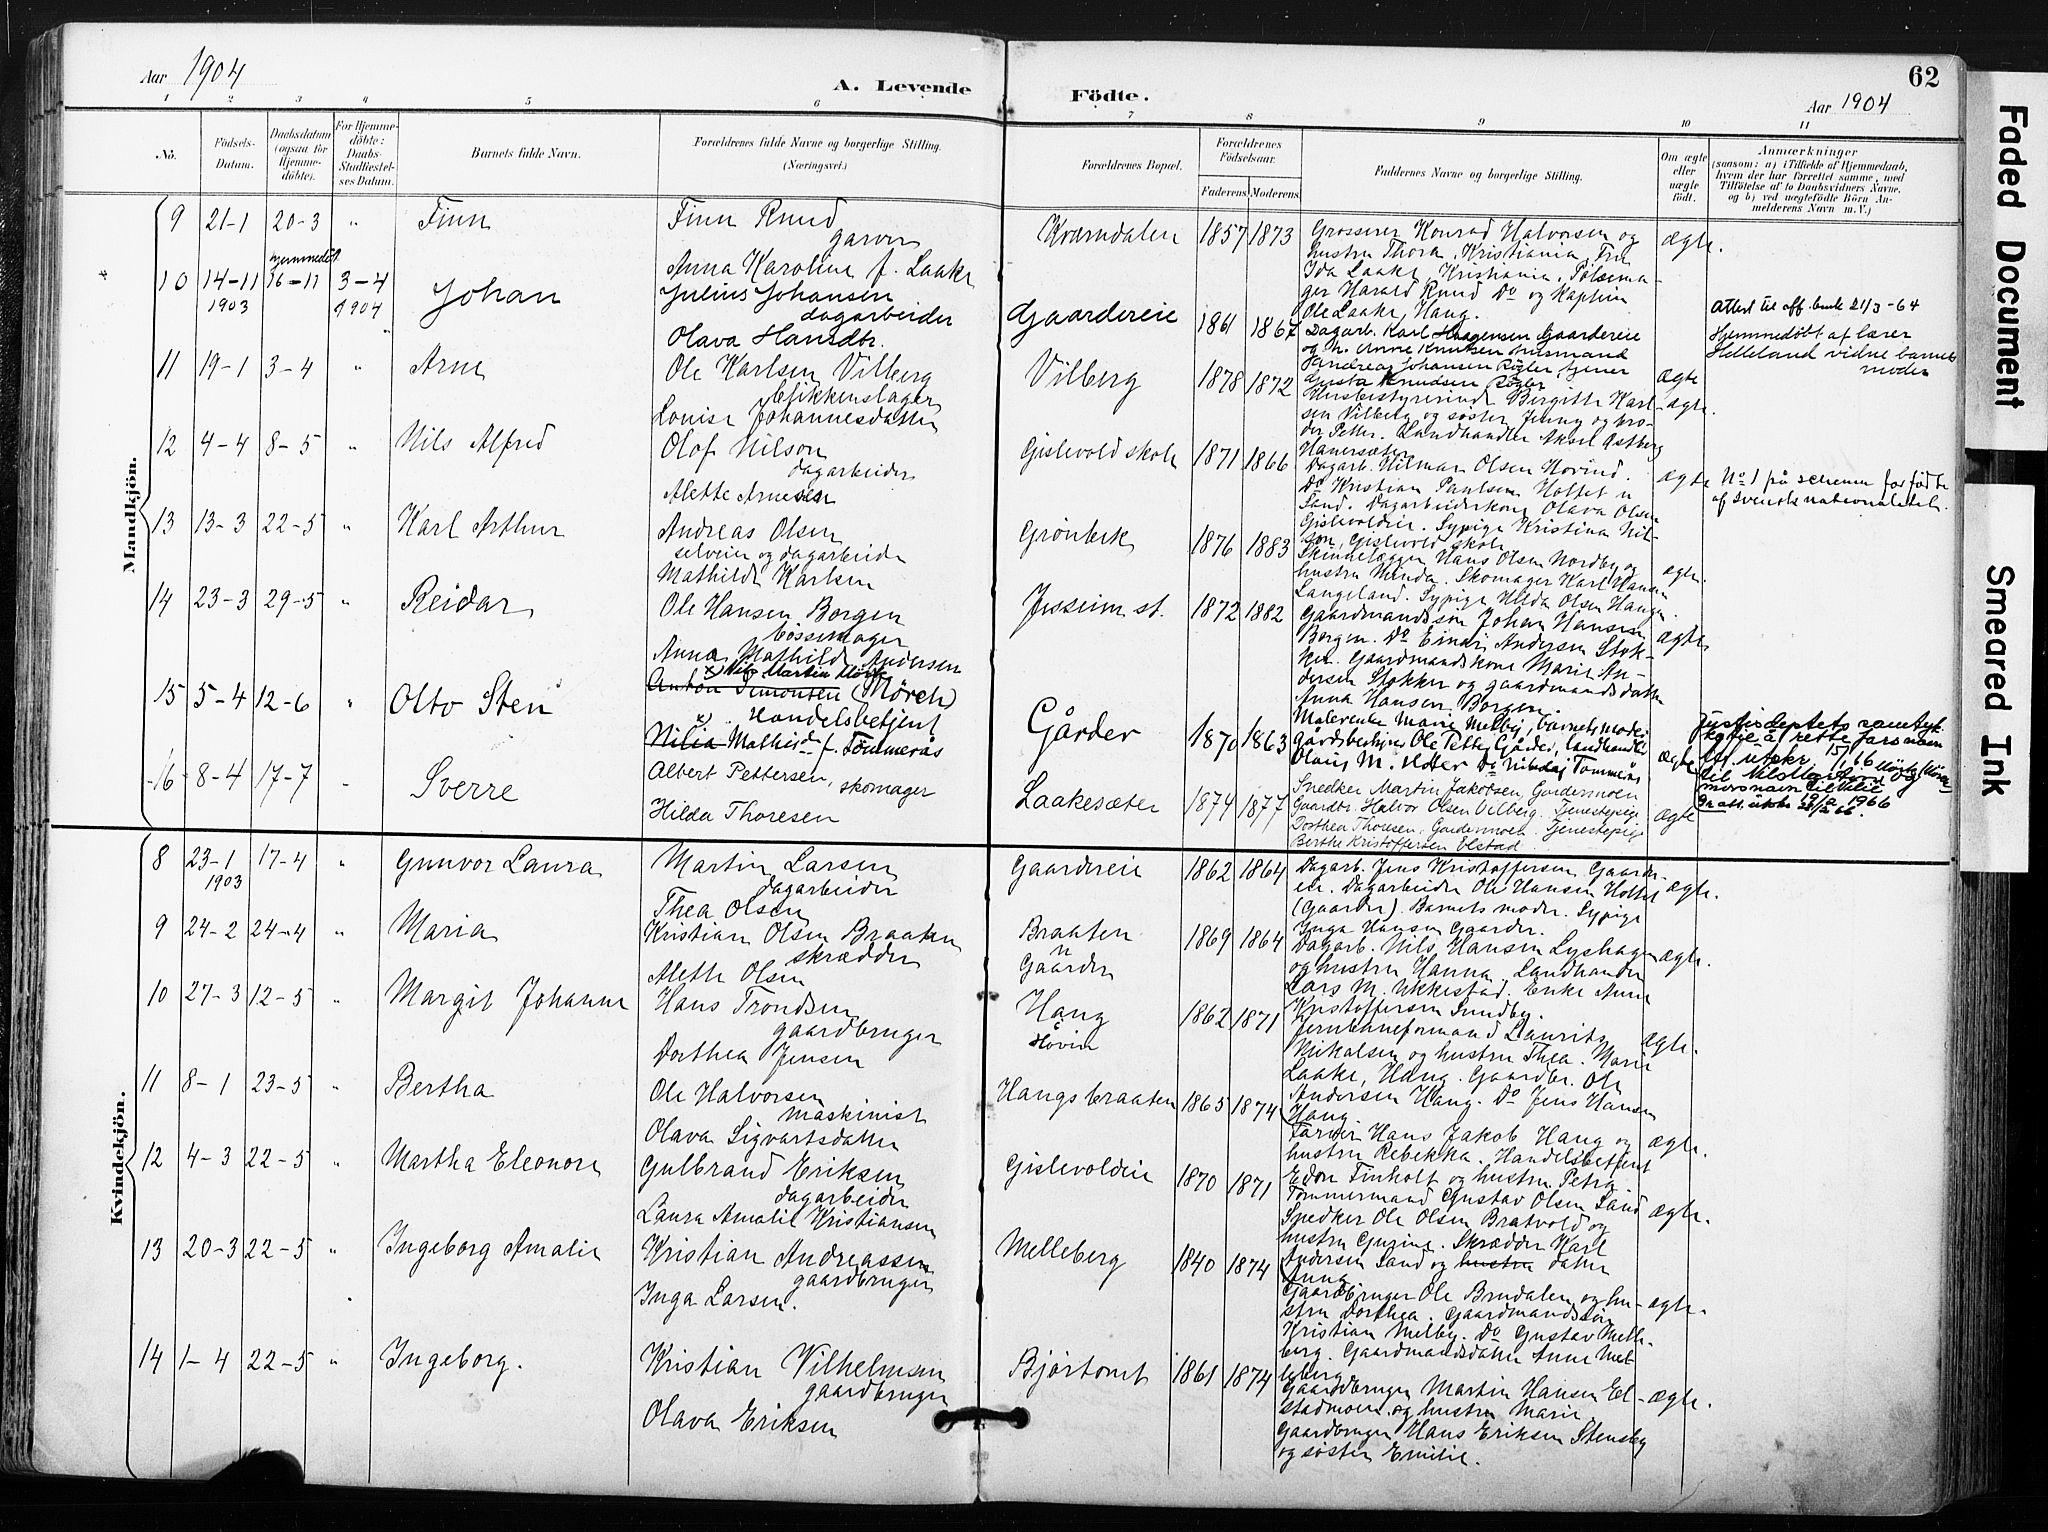 Aar 1904
A. Levende
Födte.
62
Aar 1904
1 2 3 4 5 6 7 8 9 10 11
No.
Födsels-
Datum.
Daabsdatum
(ogsaa for
Hjemme-
döbte).
For Hjemme-
döbte:
Daabs-
Stadfæstel-
ses Datum.
Barnets fulde Navn.
Forældrenes fulde Navne og borgerlige Stilling.
(Næringsvei.)
Forældrenes Bopæl.
Forældrenes
Födselsaar.
Faderens Moderens
Faddernes Navne og borgerlige Stilling.
Om ægte
eller
uægte
födt.
Anmærkninger
(saasom: a) i Tilfælde af Hjemmedaab,
hvem der har forrettet samme, med
Tilföielse af to Daabsvidners Navne,
og b) ved uægtefödte Börn An-
melderens Navn m. V.)
Mandkjön.
9 21-1 20-3 " Finn
Finn Ruud
garver
Anna Karoline f. Laake
Kværndalen 1857 1873
Grosserer Konrad Halvorsen og
hustru Thora, Kristiania, Fru
Ida Laake, Kristiania, Pølsema-
ger Harald Ruud Do og Kaptein
Ole Laake, Haug.
ægte.
10 14-11 1903 hjemmedøbt 16-11 3-4 1904 Johan
Julius Johansen
dagarbeider
Olava Hansdtr.
Gaardereie 1861 1867
Dagarb. Karl Haagensen Gaardereie
og h. Anne Knutsen husmand
Andreas Johansen Røgler tjener
Gusta Knudsen Røgler
ægte
Attest til off. bruk 21/3-64
Hjemmedøbt af lærer
Helleland vidne barnets
moder
11 19-1 3-4 " Arne
Ole Karlsen Vilberg
blikkenslager
Louise Johannesdatter
Vilberg 1878 1872
Husbestyrerinde Birgitte Karl-
sen Vilberg og søster Jenny og bro-
der Petter. Landhandler Aksel Astberg
Hanersæter
ægte.
12 4-4 8-5 " Nils Alfred
Olof Nilson
dagarbeider
Alette Arnesen
Gislevold skole 1871 1866
Dagarb. Hilmar Olsen Hovind.
Do Kristian Paulsen Holtet u
Sand. Dagarbeiderkone Olava Olsen
Gislevoldeie. Sypige Kristina Nil-
son, Gislevold skole
ægte
No 1 på schema for fødte
af svensk nationalitet.
13 13-3 22-5 " Karl Arthur
Andreas Olsen
selveier og dagarbeider
Mathilde Karlsen
Grønbæk 1876 1883
Skindfælger Hans Olsen Nordby og
hustru Minda. Skomager Karl Hansen
Langeland. Sypige Hilda Olsen Haugen.
ægte.
14 23-3 29-5 " Reidar
Ole Hansen Borgen
bøssemager
Anna Mathilde Andersen
Jessheim st. 1872 1882
Gaardmandssøn Johan Hansen
Borgen. Do Einar Andersen Stok-
ker. Gaardmandskone Marie An-
dersen Stokker og gaardmandsdatter
Anna Hansen Borgen.
ægte.
15 5-4 12-6 " Otto Sten
x) Nils Martin Mörk
Anton Simonsen (Mörch)
Handelsbetjent
Nilia Mathilde f. Tømmerås
Gårder 1870 1863
Malerenke Marie Melby, barnets moder
gårdsbestyrer Ole Petter Gårder, landhandler
Olaus M. Do Nikolaj Tømmerås
ægte
til Nils Martin
1966
16 8-4 17-7 " Sverre
Albert Pettersen, skomager
Hilda Thoresen
Laakesæter 1874 1877
Snedker Martin Jakobsen, Gardermoen
Gaardbr. Halvor Olsen Vilberg. Tjenestepige
Dorthea Thoresen, Gardermoen. Tjenestepige
Berthe Kristoffersen Elstad.
ægte
Kvindekjön.
8 23-1 1903 17-4 " Gunvor Laura
Martin Larsen
dagarbeider
Thea Olsen
Gaardereie 1862 1864
Dagarb. Jens Kristoffersen Gaarder-
eie. Dagarbeider Ole Hansen Holtet
(Gaarder). Barnets moder. Sypige
Inga Hansen Gaarder.
ægte.
9 24-2 24-4 " Maria
Kristian Olsen Braaten
skrædder
Alette Olsen
Braaten
u
Gaarder
1869 1864
Dagarb. Nils Hansen Lyshaugen
og hustru Hanna. Landhandler
Lars M. Ukkestad. Enke Anne
Kristoffersen Sundby.
ægte.
10 27-3 12-5 " Margit Johanne
Hans Trondsen
gaardbruger
Dorthea Jensen
Haug
Høvin
1862 1871
Jernbaneformand Lauritz
Mikalsen og hustru Thea. Marie
Laake, Haug. Gaardbr. Ole
Andersen Haug. Do Jens Hansen
Haug.
ægte.
11 8-1 23-5 " Bertha
Ole Halvorsen
maskinist
Olava Sigvartsdatter
Haugsbraaten 1865 1874
Farver Hans Jakob Haug og
hustru Rebekka. Handelsbetjent
Edon Finholt og hustru Petra.
ægte.
12 4-3 22-5 " Martha Eleonore
Gulbrand Eriksen
dagarbeider
Laura Amalie Kristiansen
Gislevoldeie 1870 1871
Tømmermand Gustav Olsen Sand
Snedker Ole Olsen Bratvold og
hustru Gurine. Skrædder Karl
Andersen Sand og hustru datter
Anna
ægte.
13 20-3 22-5 " Ingeborg Amalie
Kristian Andreassen
gaardbruger
Inga Larsen.
Melleberg 1840 1874
Gaardbruger Ole Brudalen og hu-
stru Dorthea. Gaardmandssøn
Kristian Melby. Do Gustav Melle-
berg. Gaardmandsdatter Anne Mel-
leberg
ægte.
14 1-4 22-5 " Ingeborg.
Kristian Vilhelmsen
gaardbruger
Olava Eriksen
Bjørtomt 1861 1874
Gaardbruger Martin Hansen El-
stadmoen og hustru Marie
Gaardbruger Hans Eriksen Stensby
og søster Emilie.
ægte.
Faded Document
Smeared Ink